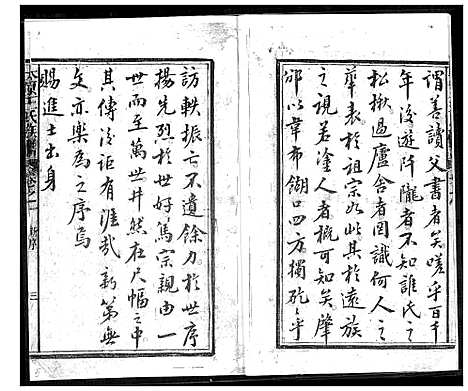 謂善讀父書者矣嗟乎百千
年後遊阡隴者不知誰氏之
松楸過廬舍者罔識何人之
華表於祖宗如此其於遠族
之視若塗人者概可知矣肇
邠以韋布餬口四方獨矻矻乎
訪軼振亡不遺餘力於世序
揚先烈於世好篤宗親由一
世而至萬世井然在尺幅之中
其傳後詎有涯哉新第無
文亦樂為之序焉
賜進士出身
新序
三